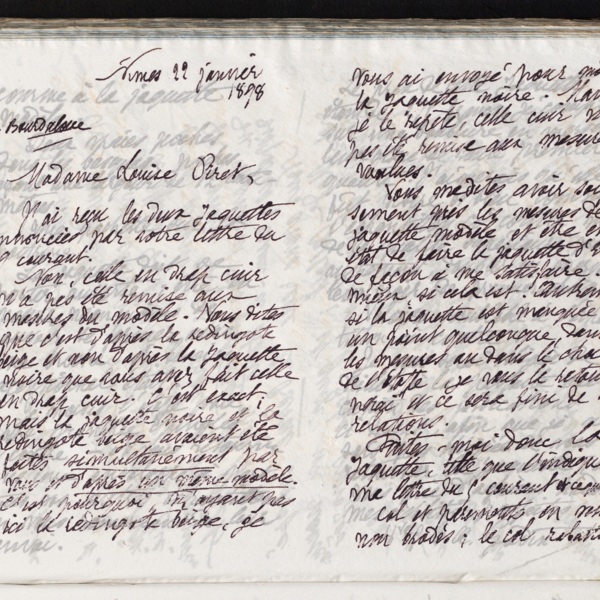 Nimes 22 janvier
1898
Bourdaloue
Madame Louise Piret,
J'ai reçu les deux jaquettes
nnoncées par votre lettre du
9 courant.
Non, celle en drap cuir
n'a pas été remise aux
mesures du modèle. Vous dites
que c'est d'après la redingote
beige et non d'après la jaquette
noire que vous avez fait celle
en drap cuir. C'est exact,
mais la jaquette noire et la
redingote beige avaient été
faites simultanément par
vous et d'après un même modèle.
C'est pourquoi, n'ayant pas
ici la redingote beige, je
vous ai envoyé pour mo
la jaquette noire.
je le répète, celle cuir n'a
pas été remise aux mesure
voulues.
Vous me dites avoir
sement pris les mesures de
jaquette modèle et être en
état de faire la jaquette d'
de façon à me satisfaire.
mieux si cela est.
si la jaquette est manquée
un point quelconque dans
les mesures ou dans le
de l'étoffe je vous la retou
et ce sera fini de
relations.
Faites-moi donc la
jaquette, telle que l'indique
ma lettre du 5 courant
col et parements en
non brodés; le col